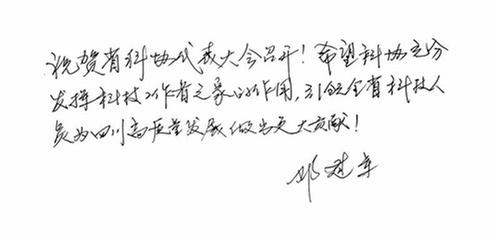 祝贺省科协代表大会召开！希望科协充分
发挥科技工作者之家的作用，引领全省科技人
员为四川高质量发展做出更大贡献！